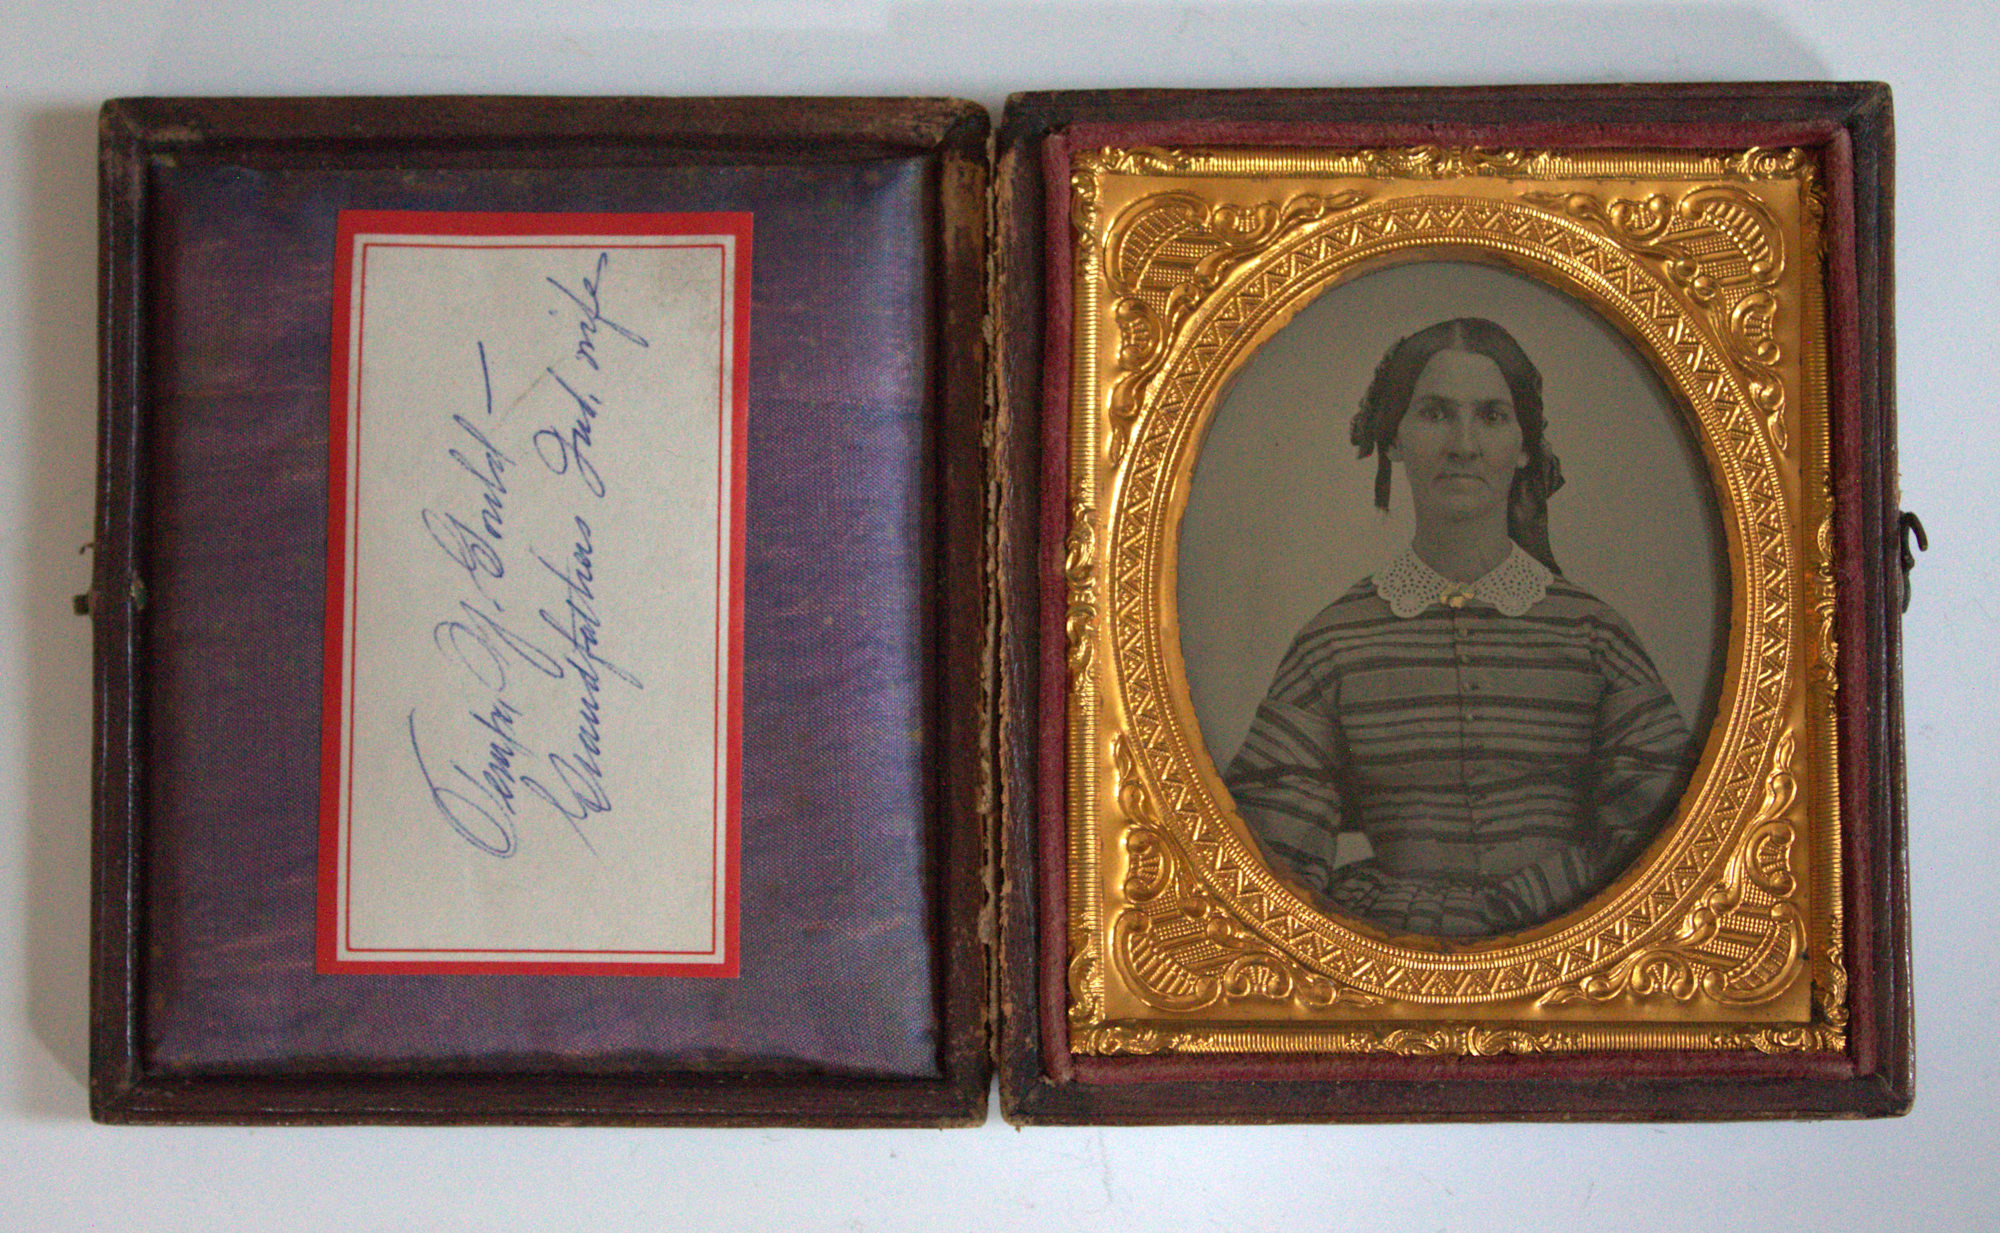 Tempy Y. Gould —
Grandfathers 2nd. wife